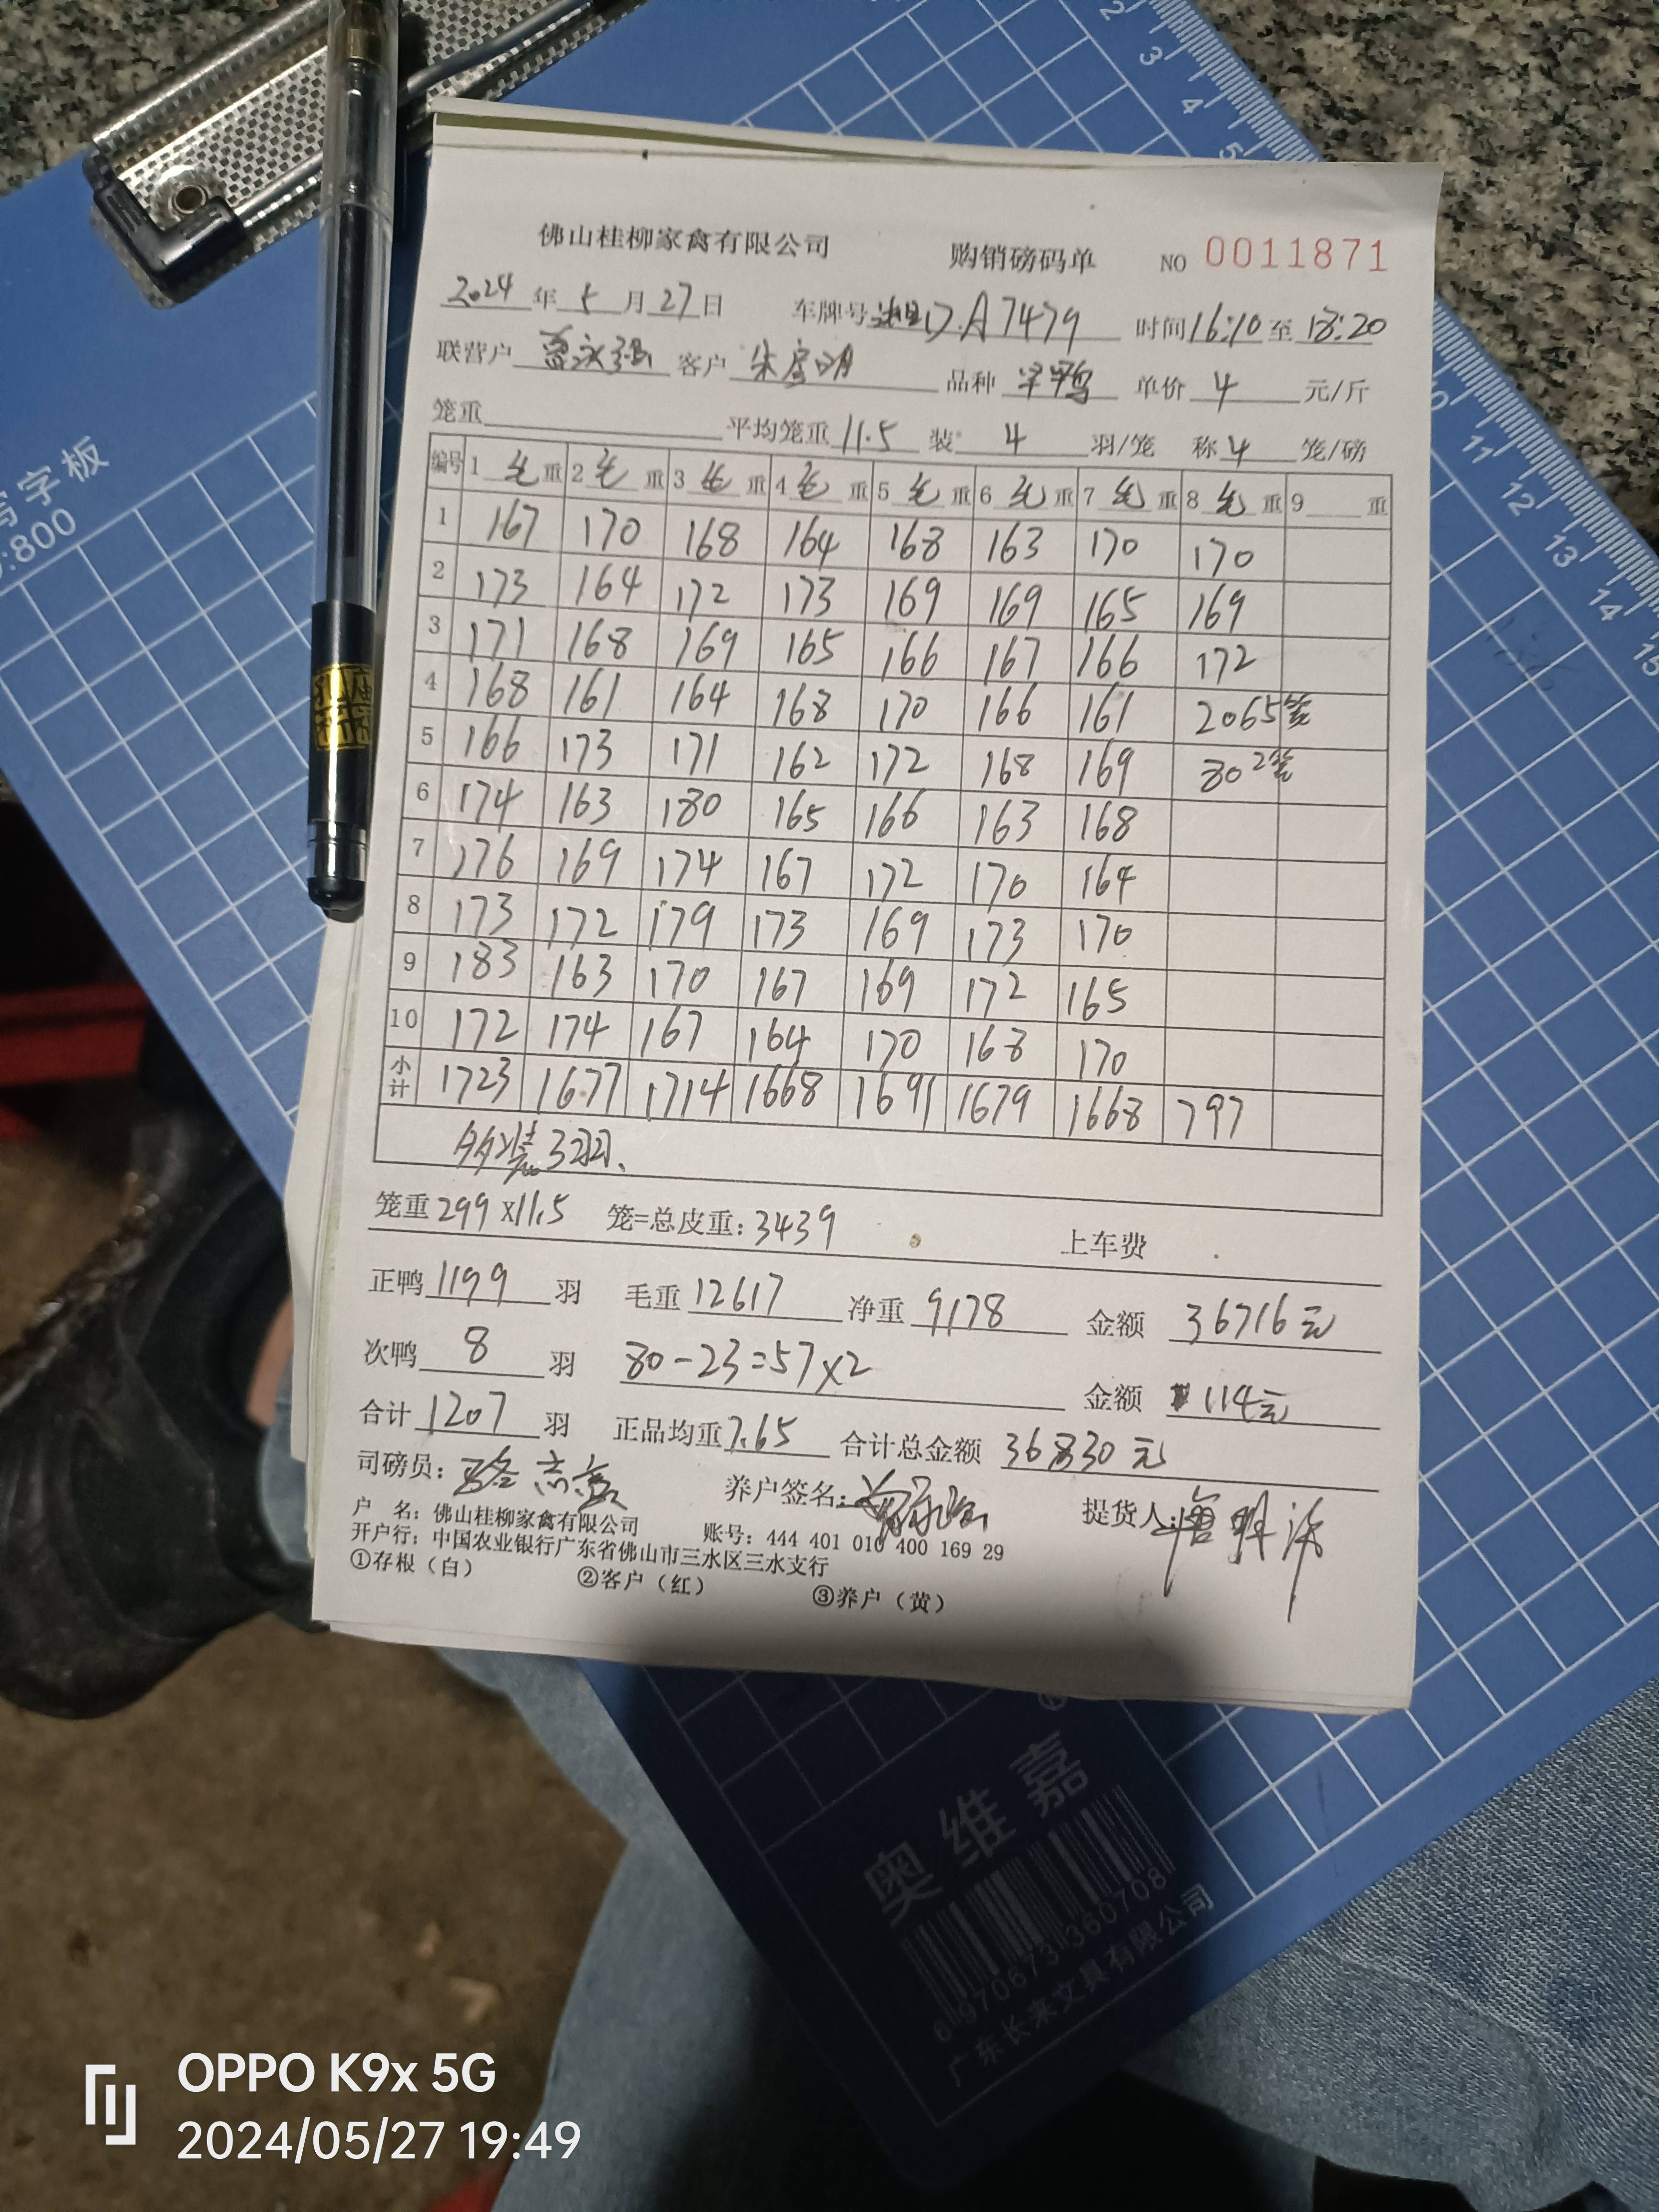 佛山桂柳家禽有限公司 购销磅码单 NO 0011871
2024年5月27日 车牌号 湘D.A7479 时间16:10至18:20
联营户 客户 品种 单价 4 元/斤
笼重 平均笼重 11.5 装 4 羽/笼 称 4 笼/磅
编号 1 毛 重 2 毛 重 3 毛 重 4 毛 重 5 毛 重 6 毛 重 7 毛 重 8 毛 重 9 重
1 167 170 168 164 168 163 170 170
2 173 164 172 173 169 169 165 169
3 171 168 169 165 166 167 166 172
4 168 161 164 168 170 166 161 206 5笼
5 166 173 171 162 172 168 169 80 2笼
6 174 163 180 165 166 163 168
7 176 169 174 167 172 170 164
8 173 172 179 173 169 173 170
9 183 163 170 167 169 172 165
10 172 174 167 164 170 168 170
小计 1723 1677 1714 1668 1691 1679 1668 797
多装3羽.
笼重 299 x11.5 笼=总皮重: 3439 上车费
正鸭 1199 羽 毛重 12617 净重 9178 金额 36716元
次鸭 8 羽 80-23=57x2 金额 114元
合计 1207 羽 正品均重 7.65 合计总金额 36830 元
司磅员: 养户签名: 提货人:
户 名: 佛山桂柳家禽有限公司 账号: 444 401 010 400 169 29
开户行: 中国农业银行广东省佛山市三水区三水支行
①存根（白） ②客户（红） ③养户（黄）
2
3
4
5
10
11
12
13
14
15
写字板
:800
奥维嘉
6 970673 360708
广东长来文具有限公司
OPPO K9x 5G
2024/05/27 19:49